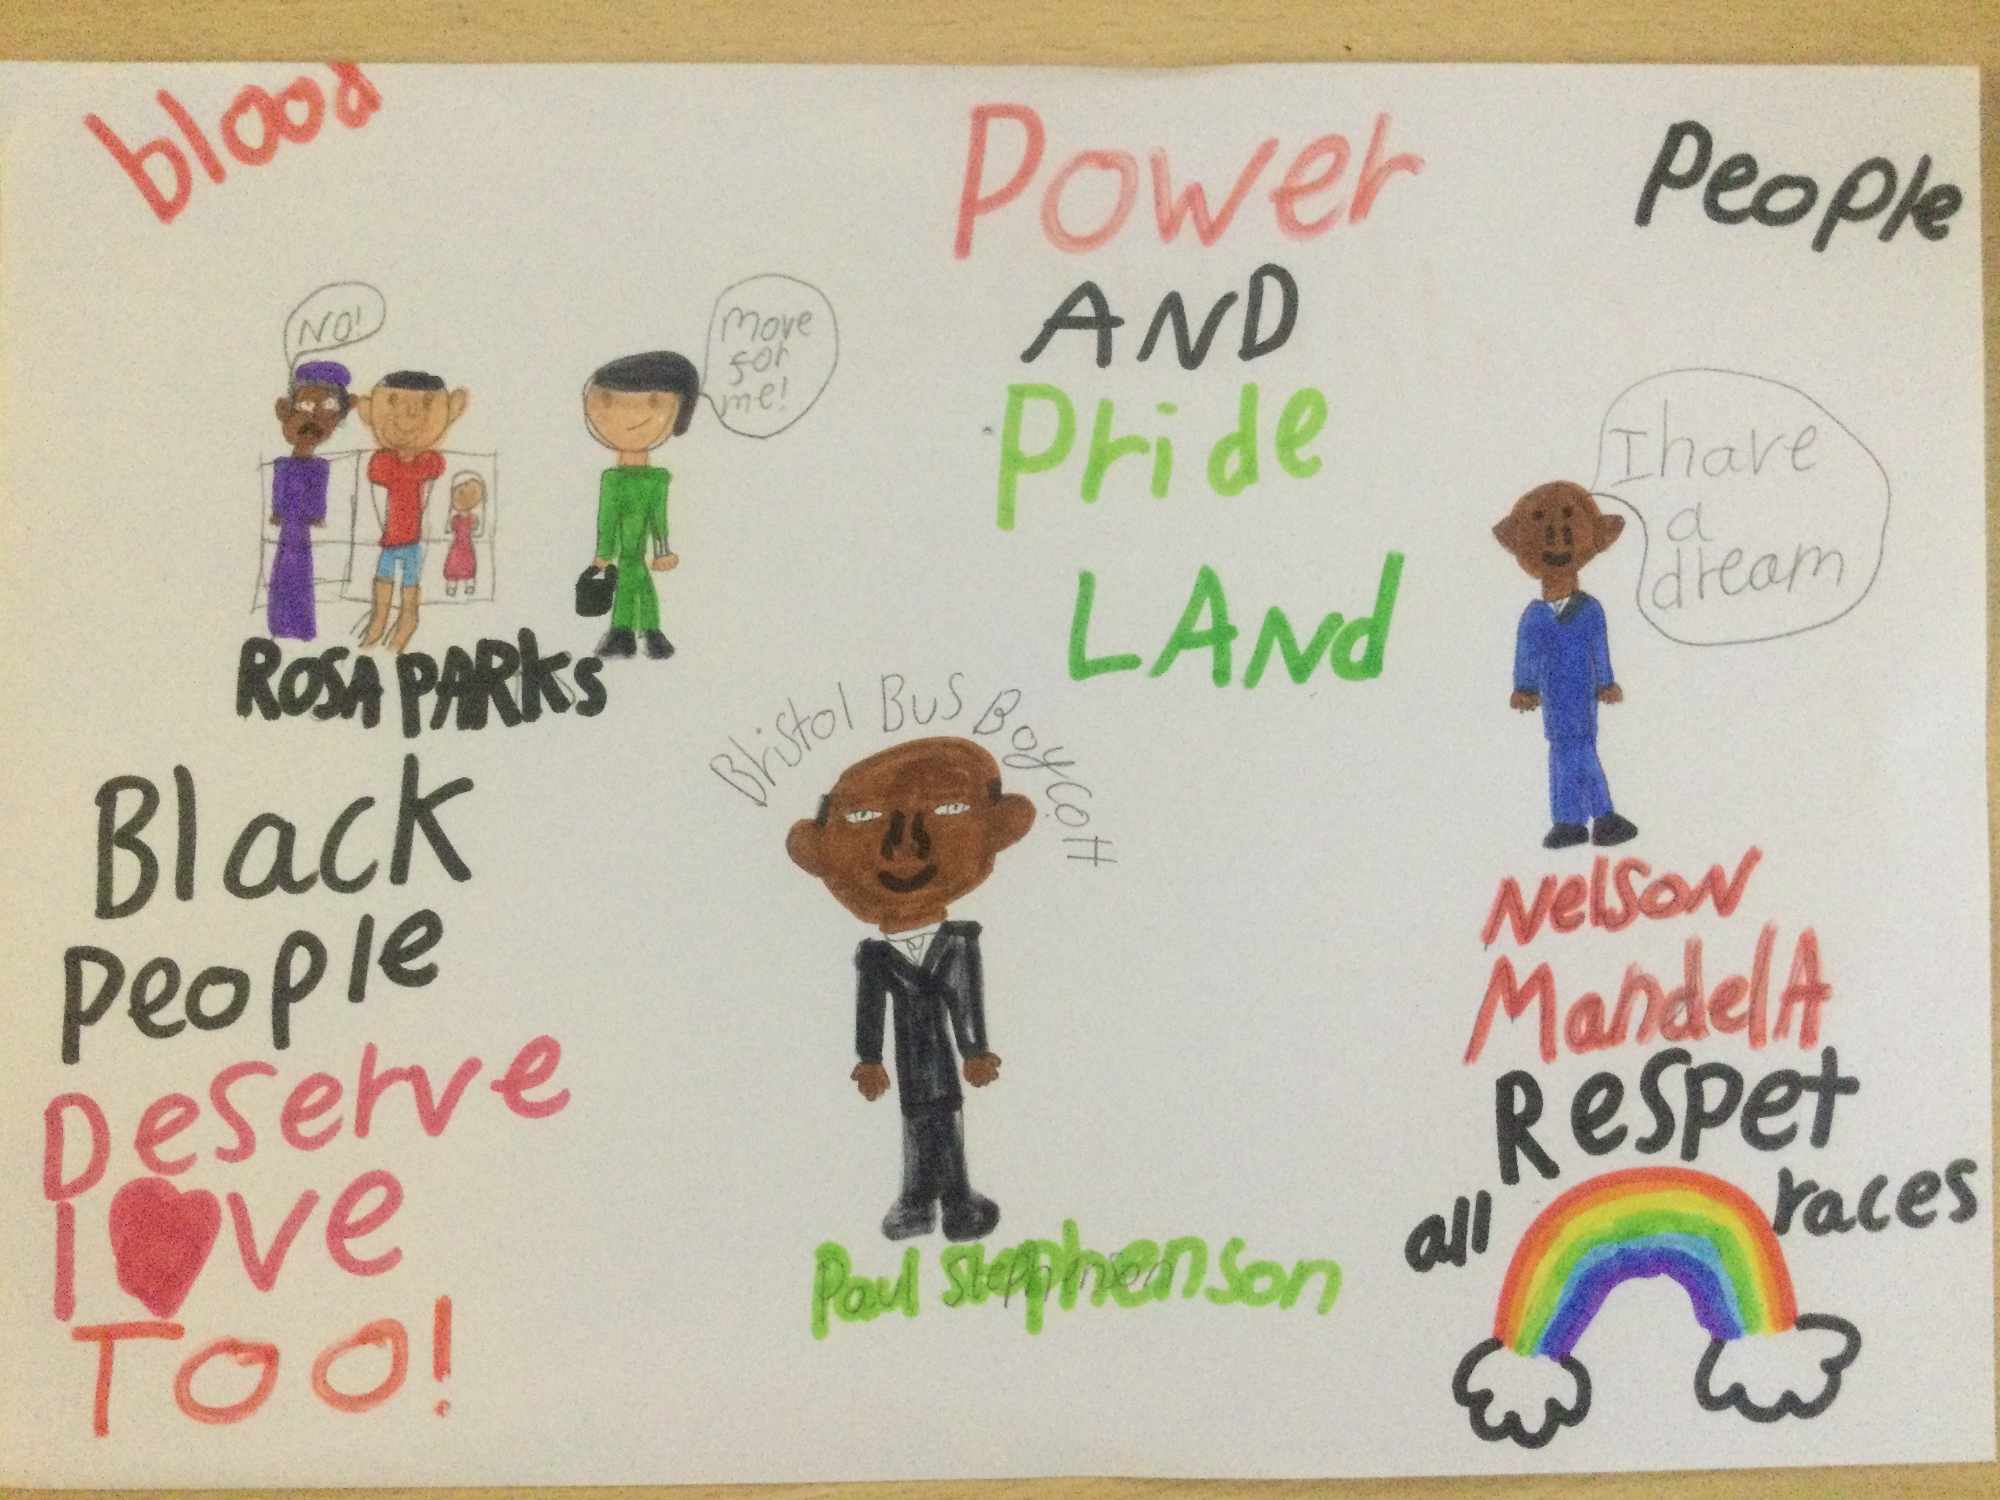 blood
Power
AND
Pride
LAnd
People
NO!
Move
for
me!
ROSA PARKS
I have
a
dream
Bristol Bus Boycott
Black
People
Deserve
love
Too!
Paul Stephenson
Nelson
MandelA
Respet
all races